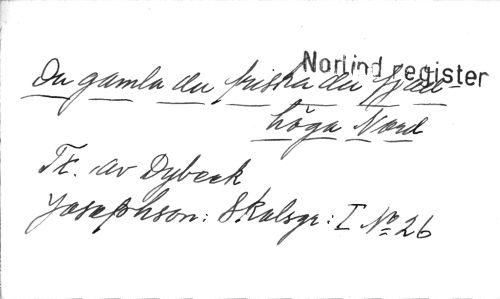 Norlind register
Du gamla du friska du fjäll-
höga Nord
Tx. av Dybeck
Josephson: Skalsgr: I No 26